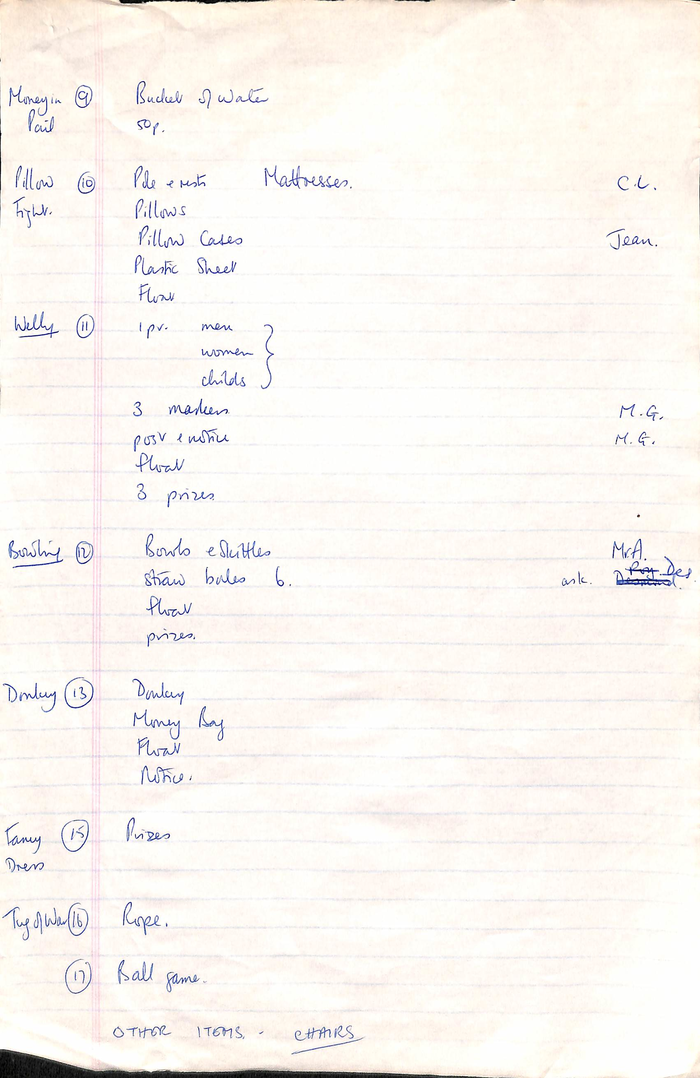 Money in ⑨ Bucket of Water
Pail 50p.
Pillow ⑩ Pole & rests Mattresses. C.L.
Fight. Pillows
Pillow Cases Jean.
Plastic Sheet
Float
Welly ⑪ 1 pr. men
women
childs
3 markers M.G.
post & notice M.G.
float
3 prizes
Bowling ⑫ Bowls & Skittles Mr A.
straw bales 6. ask. Des.
float
prizes.
Donkey ⑬ Donkey
Money Bag
Float
Notice.
Fancy ⑮ Prizes
Dress
Tug of War ⑯ Rope.
⑰ Ball game.
OTHER ITEMS - CHAIRS